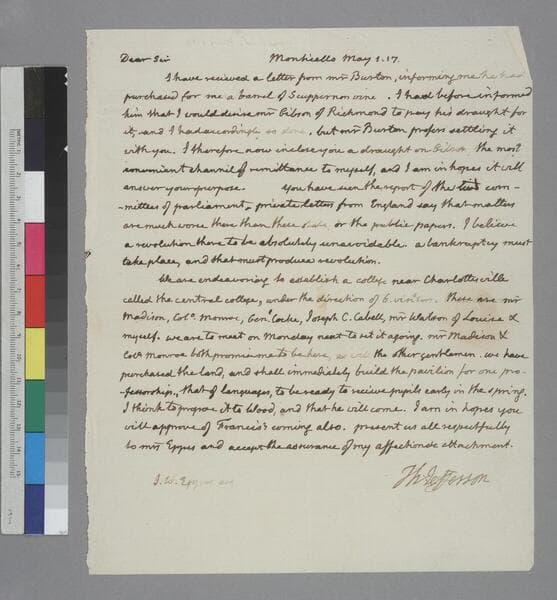 Dear Sir Monticello May 1. 17.
I have recieved a letter from mr Burton, informing me he had
purchased for me a barrel of Scuppernon wine. I had before informed
him that I would desire mr Gibson of Richmond to pay his draught for
it, and I had accordingly so done, but mr Burton prefers settling it
with you. I therefore now inclose you a draught on Gibson, the most
convenient channel of remittance to myself, and I am in hopes it will
answer your purpose. You have seen the report of the com-
-mittees of parliament, private letters from England say that matters
are much worse there than these state, or the public papers. I believe
a revolution there to be absolutely unavoidable. a bankruptcy must
take place, and that must produce revolution.
We are endeavoring to establish a college near Charlottesville
called the central college, under the direction of 6. visitors. these are mr
Madison, Colo. Monroe, Genl. Cocke, Joseph C. Cabell, mr Watson of Louisa &
myself. we are to meet on Monday next to set it agoing. mr Madison &
Colo. Monroe both promise me to be here, as will the other gentlemen. we have
purchased the land, and shall immediately build the pavilion for one pro-
-fessorship, that of languages, to be ready to recieve pupils early in the spring.
I think to propose it to Wood, and that he will come. I am in hopes you
will approve of Francis's coming also. present us all respectfully
to mrs Eppes and accept the assurance of my affectionate attachment.
Th: Jefferson
J. W. Eppes esq